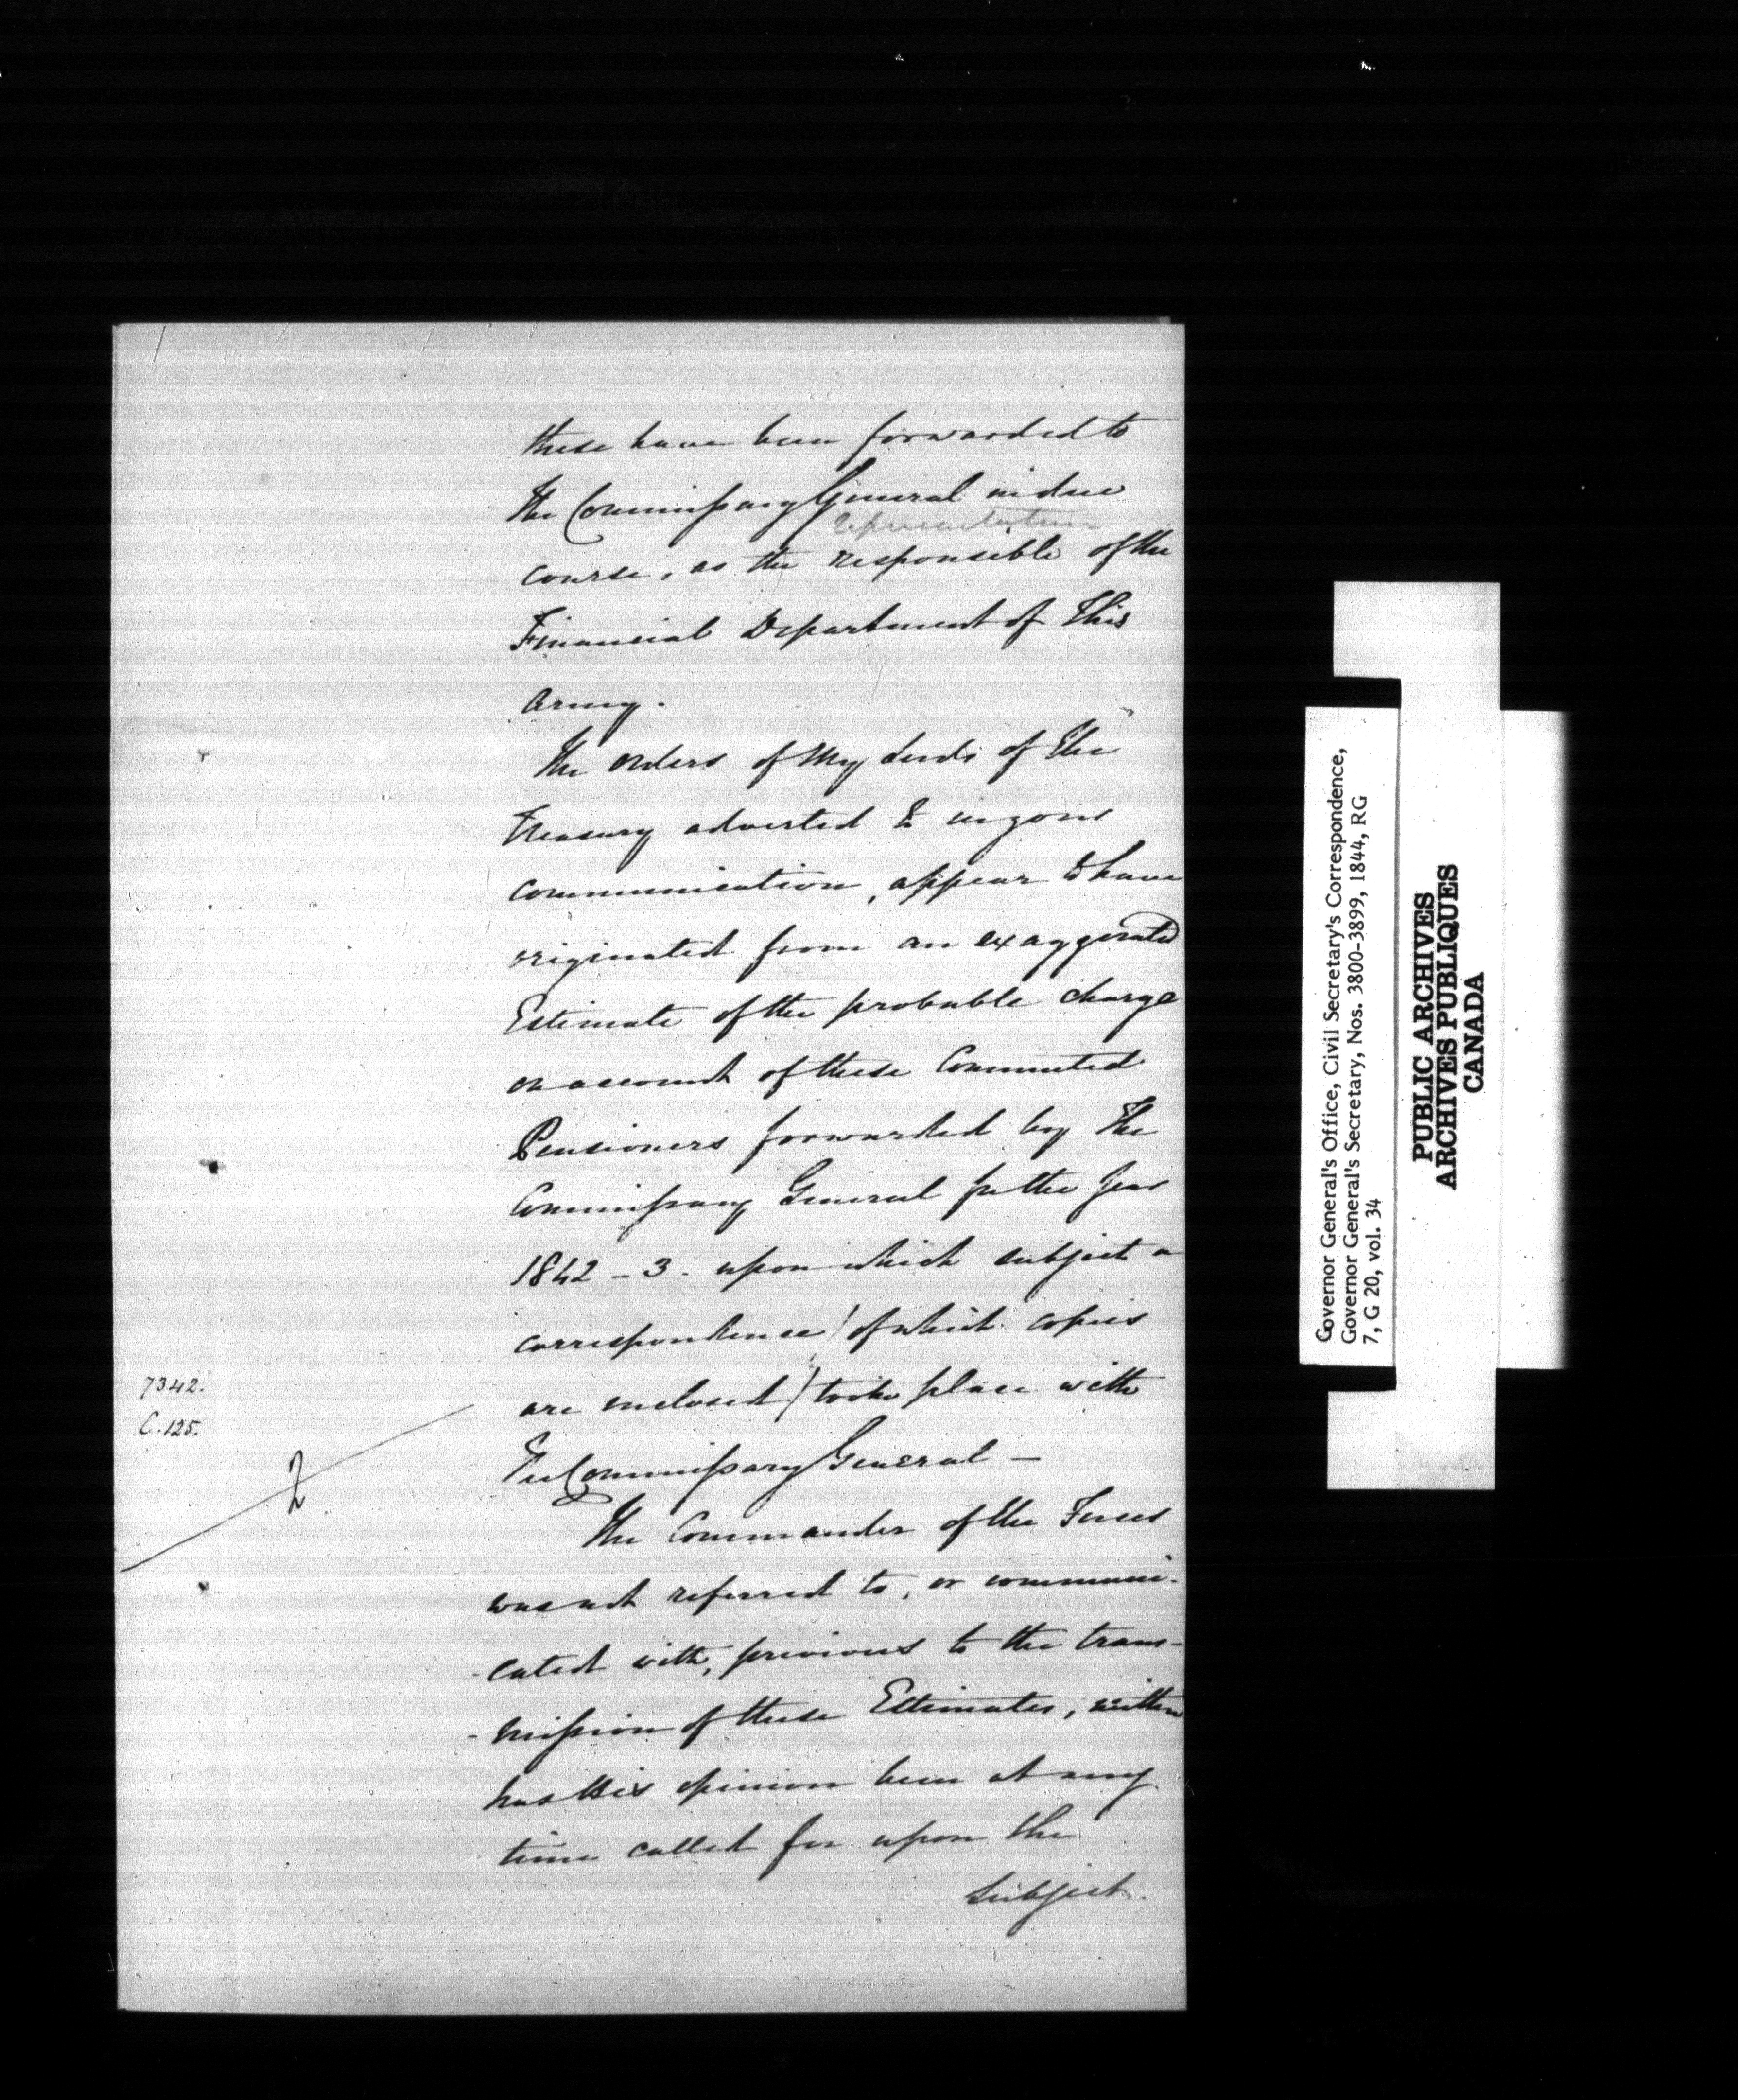 these have been forwarded to
the Commissary General in due
representative
course, as the responsible of the
Financial Department of this
Army.
The orders of My Lords of the
Treasury adverted to in your
communication, appear to have
originated from an exaggerated
Estimate of the probable charge
on account of these Commuted
Pensioners forwarded by the
Commissary General for the Year
1842-3. upon which subject a
correspondence (of which copies
are enclosed) took place with
The Commissary General —
7342.
C.125.
2
The Commander of the Forces
was not referred to, or communi-
-cated with, previous to the trans-
-mission of these Estimates, neither
has His opinion been at any
time called for upon the
subject.
Governor General's Office, Civil Secretary's Correspondence,
Governor General's Secretary, Nos. 3800-3899, 1844, RG
7, G 20, vol. 34
PUBLIC ARCHIVES
ARCHIVES PUBLIQUES
CANADA